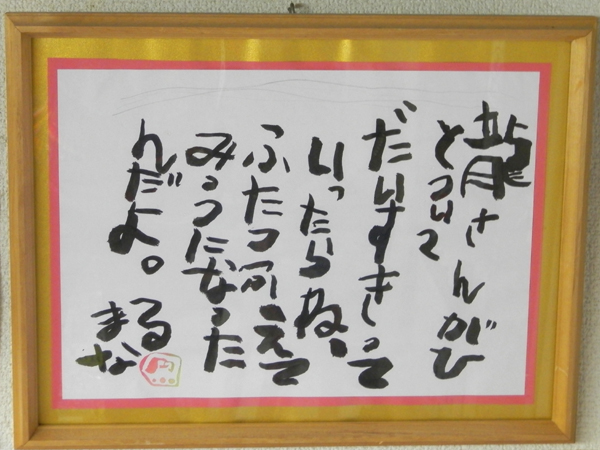 龍さんがひ
とついて
だいすきって
いったらね、
ふたつふえて
みっつになった
んだよ。
まな